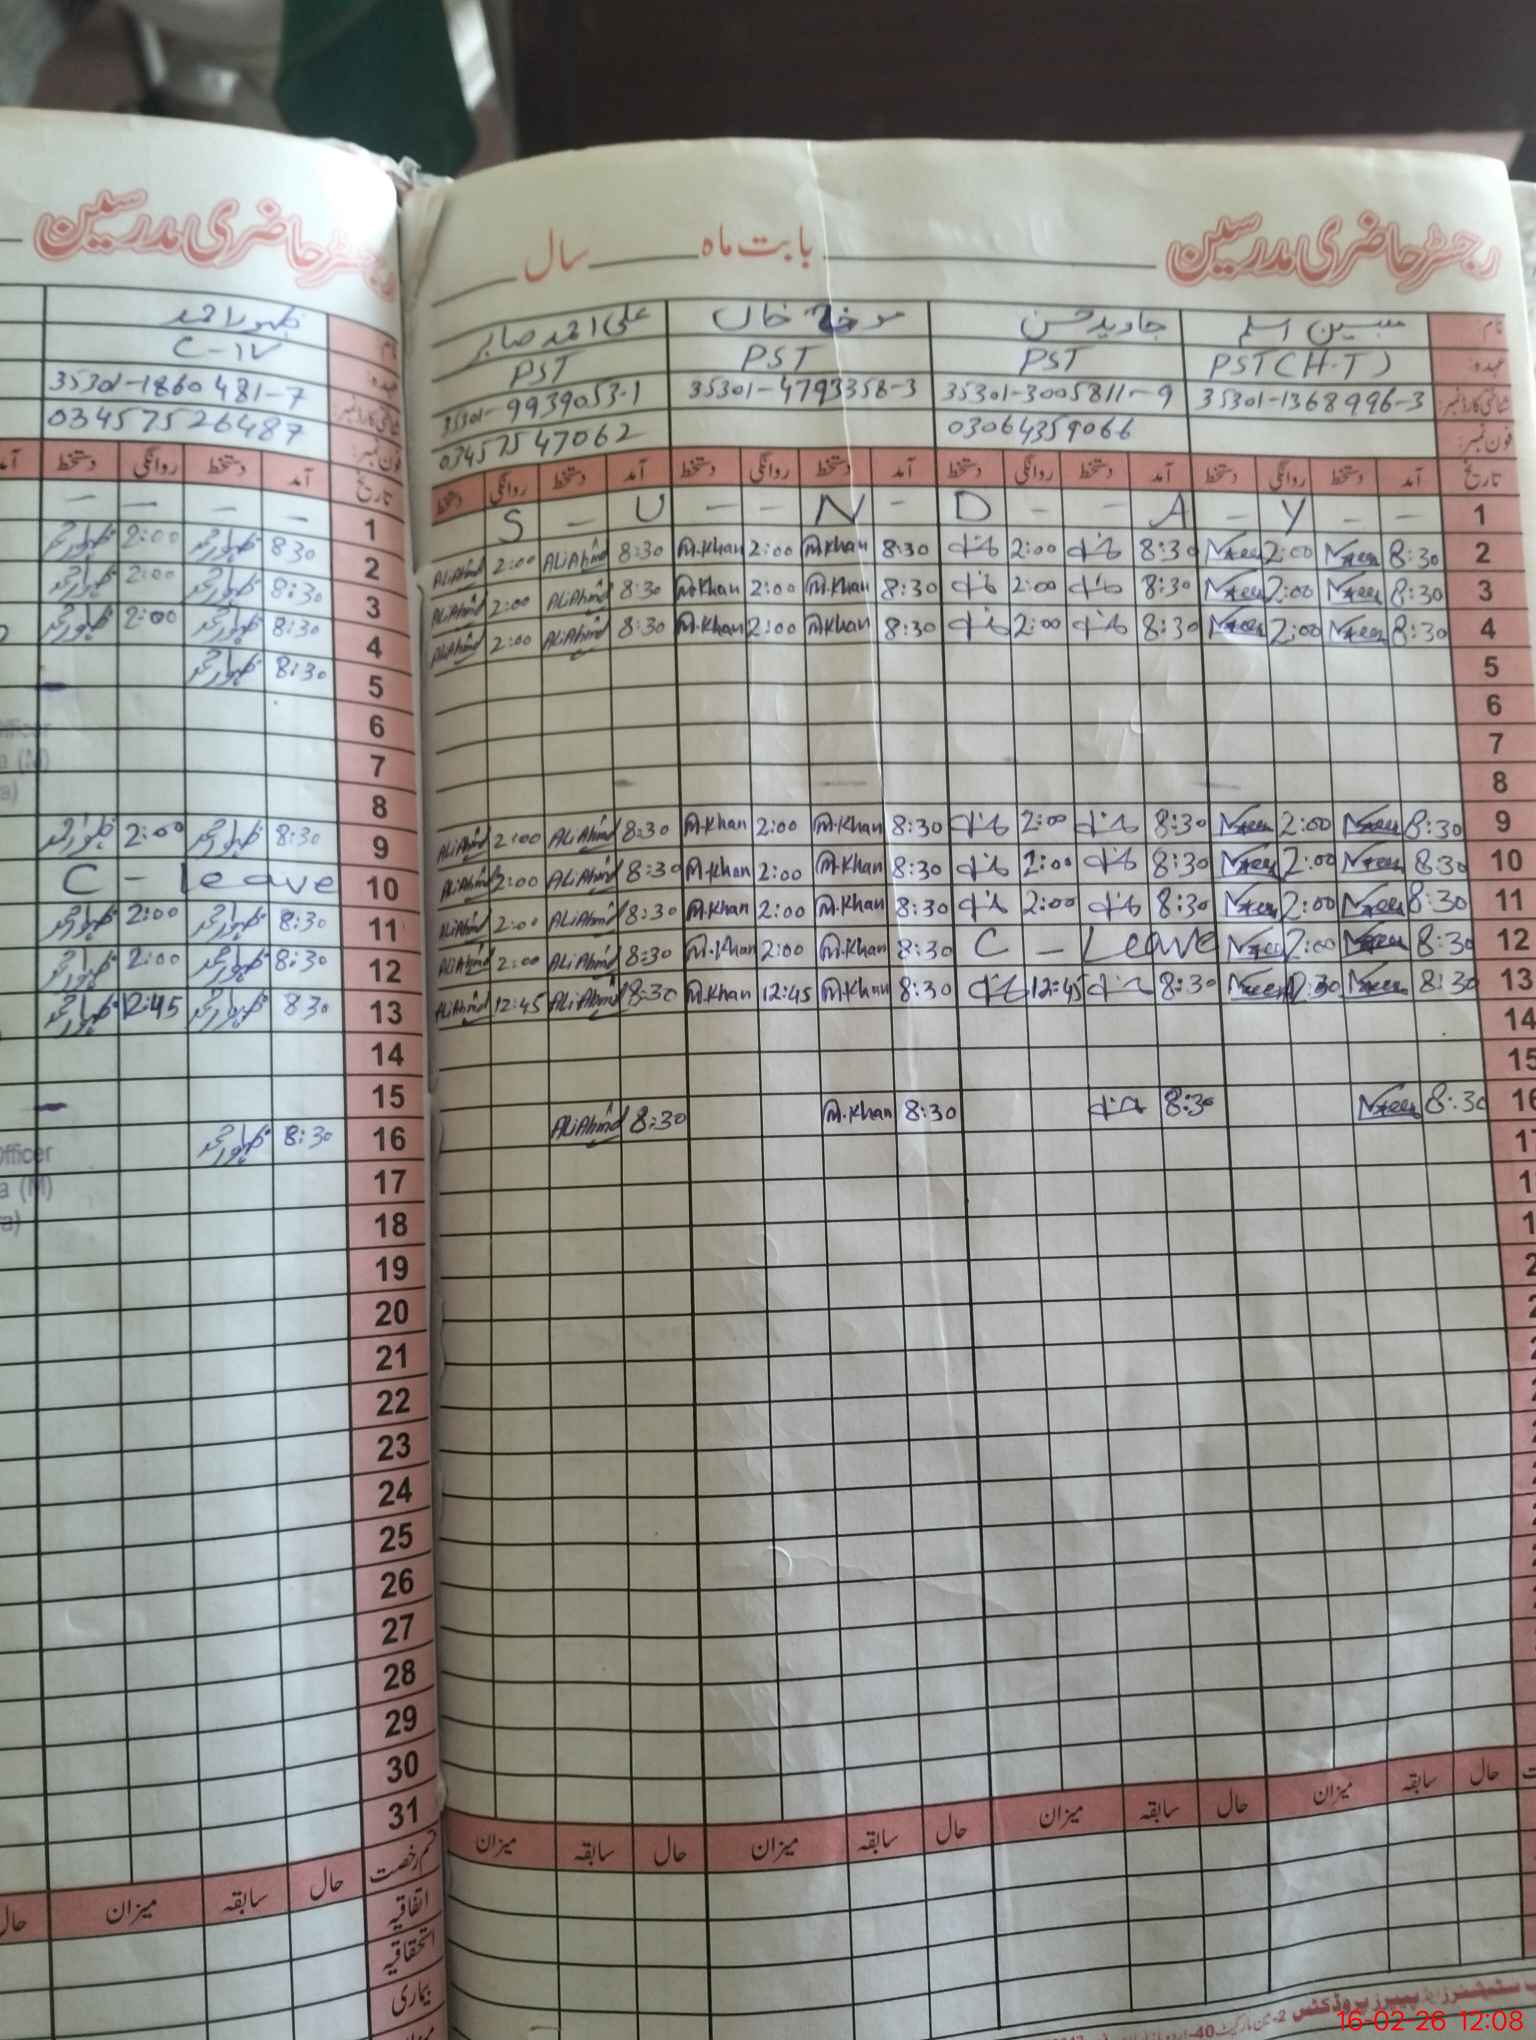 رجسٹر حاضری مدرسین
رجسٹر حاضری مدرسین بابت ماہ سال
نام ظہور احمد
عہدہ C-IV
شناختی کارڈ نمبر: 35301-1860481-7
فون نمبر: 03457526487
تاریخ آمد دستخط روانگی دستخط
1 — — — —
2 8:30 ظہور احمد 2:00 ظہور احمد
3 8:30 ظہور احمد 2:00 ظہور احمد
4 8:30 ظہور احمد 2:00 ظہور احمد
5 8:30 ظہور احمد
6
7
8
9 8:30 ظہور احمد 2:00 ظہور احمد
C - Leave 10
11 8:30 ظہور احمد 2:00 ظہور احمد
12 8:30 ظہور احمد 2:00 ظہور احمد
13 8:30 ظہور احمد 12:45 ظہور احمد
14
15
16 8:30 ظہور احمد
17
18
19
20
21
22
23
24
25
26
27
28
29
30
31
قسم رخصت حال سابقہ میزان حال
اتفاقیہ
استحقاقیہ
بیماری
Officer
a (M)
a)
Officer
a (M)
a)
نام: مبین اسلم جاوید حسن خان علی احمد صابر
عہدہ PST (H.T) PST PST PST
شناختی کارڈ نمبر: 35301-1368996-3 35301-3005811-9 35301-4793358-3 35301-9939053-1
فون نمبر: 03064359066 03457547062
تاریخ آمد دستخط روانگی دستخط آمد دستخط روانگی دستخط آمد دستخط روانگی دستخط آمد دستخط روانگی دستخط
S — U — — N - D - - A — Y — — 1
Ali Ahmd 2:00 Ali Ahmd 8:30 M.Khan 2:00 M.Khan 8:30 2:00 8:30 2:00 8:30 2
Ali Ahmd 2:00 Ali Ahmd 8:30 M.Khan 2:00 M.Khan 8:30 2:00 8:30 2:00 8:30 3
Ali Ahmd 2:00 Ali Ahmd 8:30 M.Khan 2:00 M.Khan 8:30 2:00 8:30 2:00 8:30 4
5
6
7
8
Ali Ahmd 2:00 Ali Ahmd 8:30 M.Khan 2:00 M.Khan 8:30 2:00 8:30 2:00 8:30 9
Ali Ahmd 2:00 Ali Ahmd 8:30 M.Khan 2:00 M.Khan 8:30 2:00 8:30 2:00 8:30 10
Ali Ahmd 2:00 Ali Ahmd 8:30 M.Khan 2:00 M.Khan 8:30 2:00 8:30 2:00 8:30 11
Ali Ahmd 2:00 Ali Ahmd 8:30 M.Khan 2:00 M.Khan 8:30 C - Leave 2:00 8:30 12
Ali Ahmd 12:45 Ali Ahmd 8:30 M.Khan 12:45 M.Khan 8:30 12:45 8:30 8:30 13
14
15
Ali Ahmd 8:30 M.Khan 8:30 8:30 8:30 16
حال سابقہ میزان حال سابقہ میزان حال سابقہ میزان حال سابقہ میزان
پیپرز پروڈکٹس
16-02-26 12:08